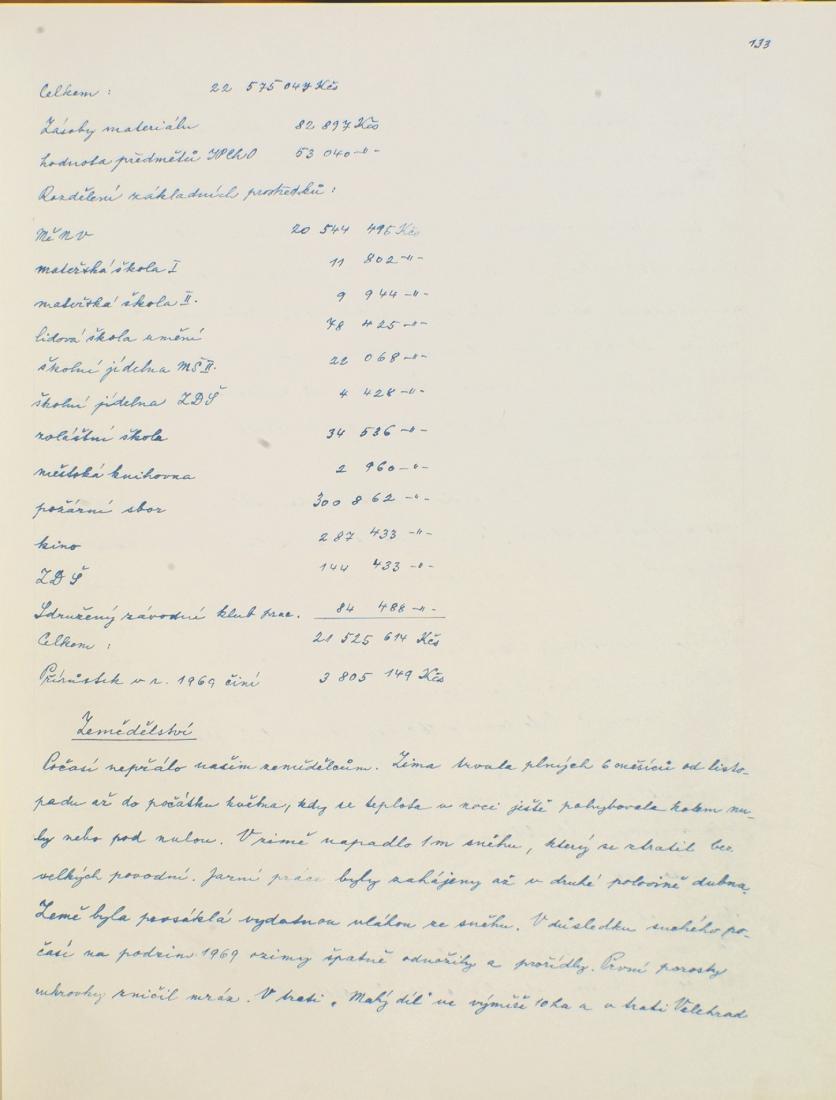 133
Celkem : 22 575 047 Kčs
Zásoby materiálu 82 897 Kčs
hodnota předmětů 53 040 -"-
Rozdělení základních prostředků :
MěNV 20 544 495 Kčs
mateřská škola I 11 802 -"-
mateřská škola II. 9 944 -"-
lidová škola umění 78 425 -"-
školní jídelna MŠ II. 22 068 -"-
školní jídelna ZDŠ 4 428 -"-
zvláštní škola 34 536 -"-
městská knihovna 2 960 -"-
požární sbor 300 862 -"-
kino 287 433 -"-
ZDŠ 144 433 -"-
Sdružený závodní klub prac. 84 488 -"-
Celkem : 21 525 614 Kčs
Přírůstek v r. 1969 činí 3 805 149 Kčs
Zemědělství
Počasí nepřálo našim zemědělcům. Zima trvala plných 6 měsíců od listo-
padu až do počátku května, kdy se teplota v noci ještě pohybovala kolem nu-
ly nebo pod nulou. V zimě napadlo 1 m sněhu, který se ztratil bez
velkých povodní. Jarní práce byly zahájeny až v druhé polovině dubna.
Země byla prosáklá vydatnou vláhou ze sněhu. V důsledku suchého po-
časí na podzim 1969 ozimy špatně odnožily a prořídly. První porosty
cukrovky zničil mráz. V trati „Malý díl" ve výměře 10 ha a v trati Velehrad